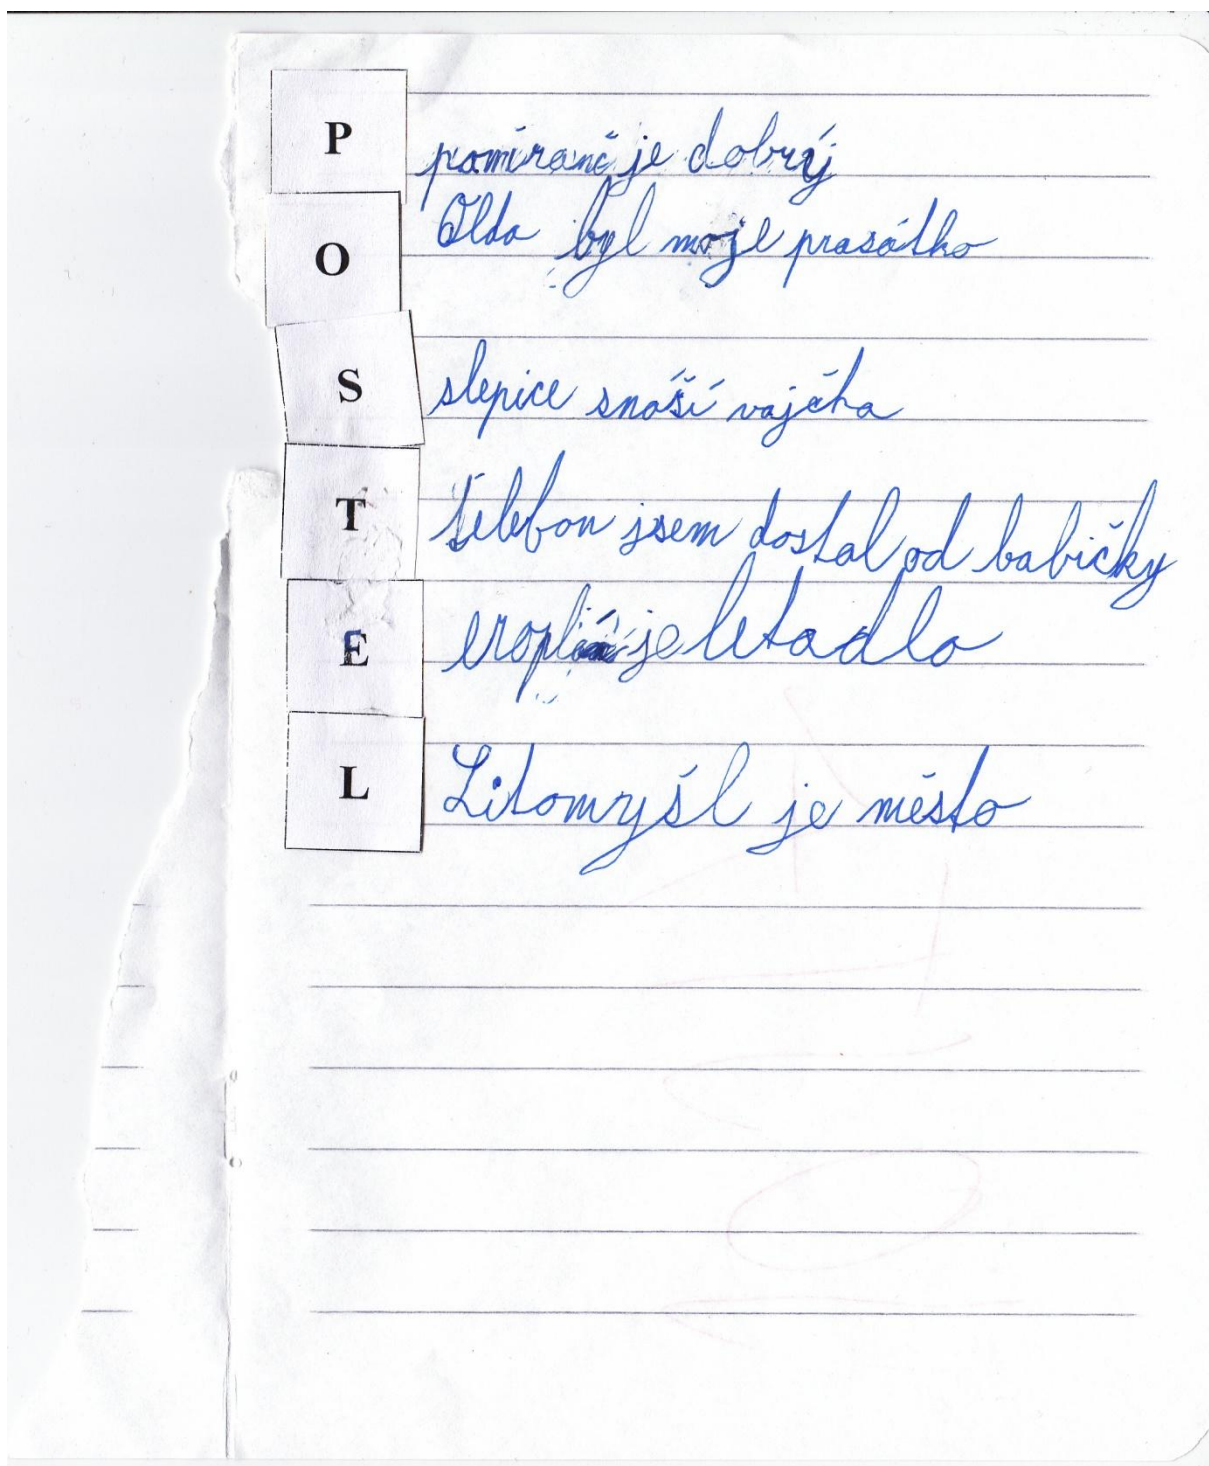 P pomíranč je dobrý
O Olda byl moje prasátko
S slepice snáší vajíčka
T telefon jsem dostal od babičky
E je letadlo
L Litomyšl je město